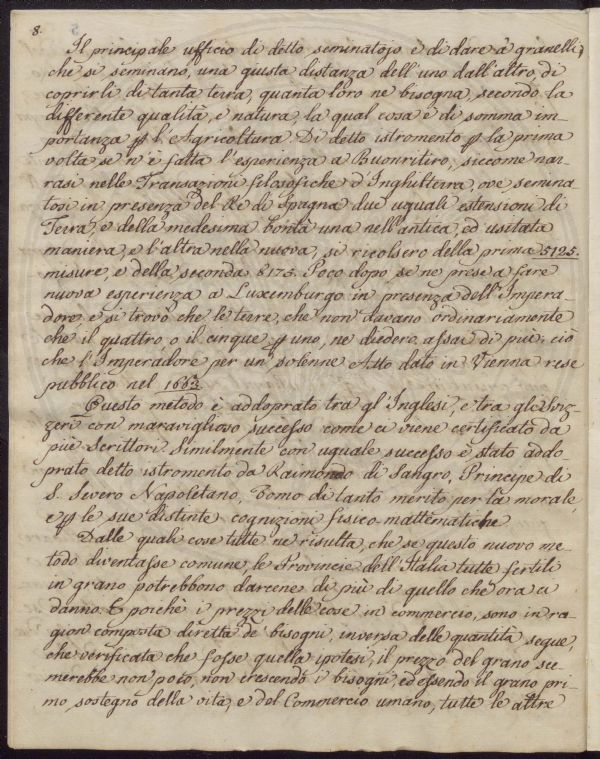 8.
Il principale ufficio di detto seminatojo è di dare a' granelli,
che si seminano, una giusta distanza dell'uno dall'altro, di
coprirli di tanta terra, quanta loro ne bisogna, secondo la
differente qualità, e natura, la qual cosa è di somma im-
portanza p l'Agricoltura. Di detto istromento p la prima
volta se n'è fatta l'esperienza a Buonritiro, siccome nar-
rasi nelle Transazioni filosofiche d'Inghilterra, ove semina-
tosi in presenza del Re di Spagna due uguali estensioni di
Terra, e della medesima bontà una nell'antica, ed usitata
maniera, e l'altra nella nuova, si ricolsero della prima 5125.
misure, e della seconda 8175. Poco dopo se ne prese a fare
nuova esperienza a Luxemburgo in presenza dell'Impera-
dore, e si trovò che le terre, che non davano ordinariamente
che il quattro, o il cinque p uno, ne diedero assai di più; ciò
che l'Imperadore per un solenne Atto dato in Vienna rese
pubblico nel 1663.
Questo metodo è addoprato tra gl'Inglesi, e tra gli Sviz-
zeri con maraviglioso successo come ci viene certificato da
più Scrittori. Similmente con uguale successo è stato addo-
prato detto istromento da Raimondo di Sangro, Principe di
S. Severo Napoletano, Uomo di tanto merito per la morale,
e p le sue distinte cognizioni fisico-mattematiche.
Dalle quali cose tutte ne risulta, che se questo nuovo me-
todo diventasse comune, le Provincie dell'Italia tutte fertili
in grano potrebbono darcene di più di quello che ora ci
danno. E poichè i prezzi delle cose in commercio, sono in ra-
gion composta diretta de' bisogni, inversa delle quantità segue,
che verificata che fosse quella ipotesi, il prezzo del grano sce-
merebbe non poco, non crescendo i bisogni, ed essendo il grano pri-
mo sostegno della vita, e del Commercio umano, tutte le altre